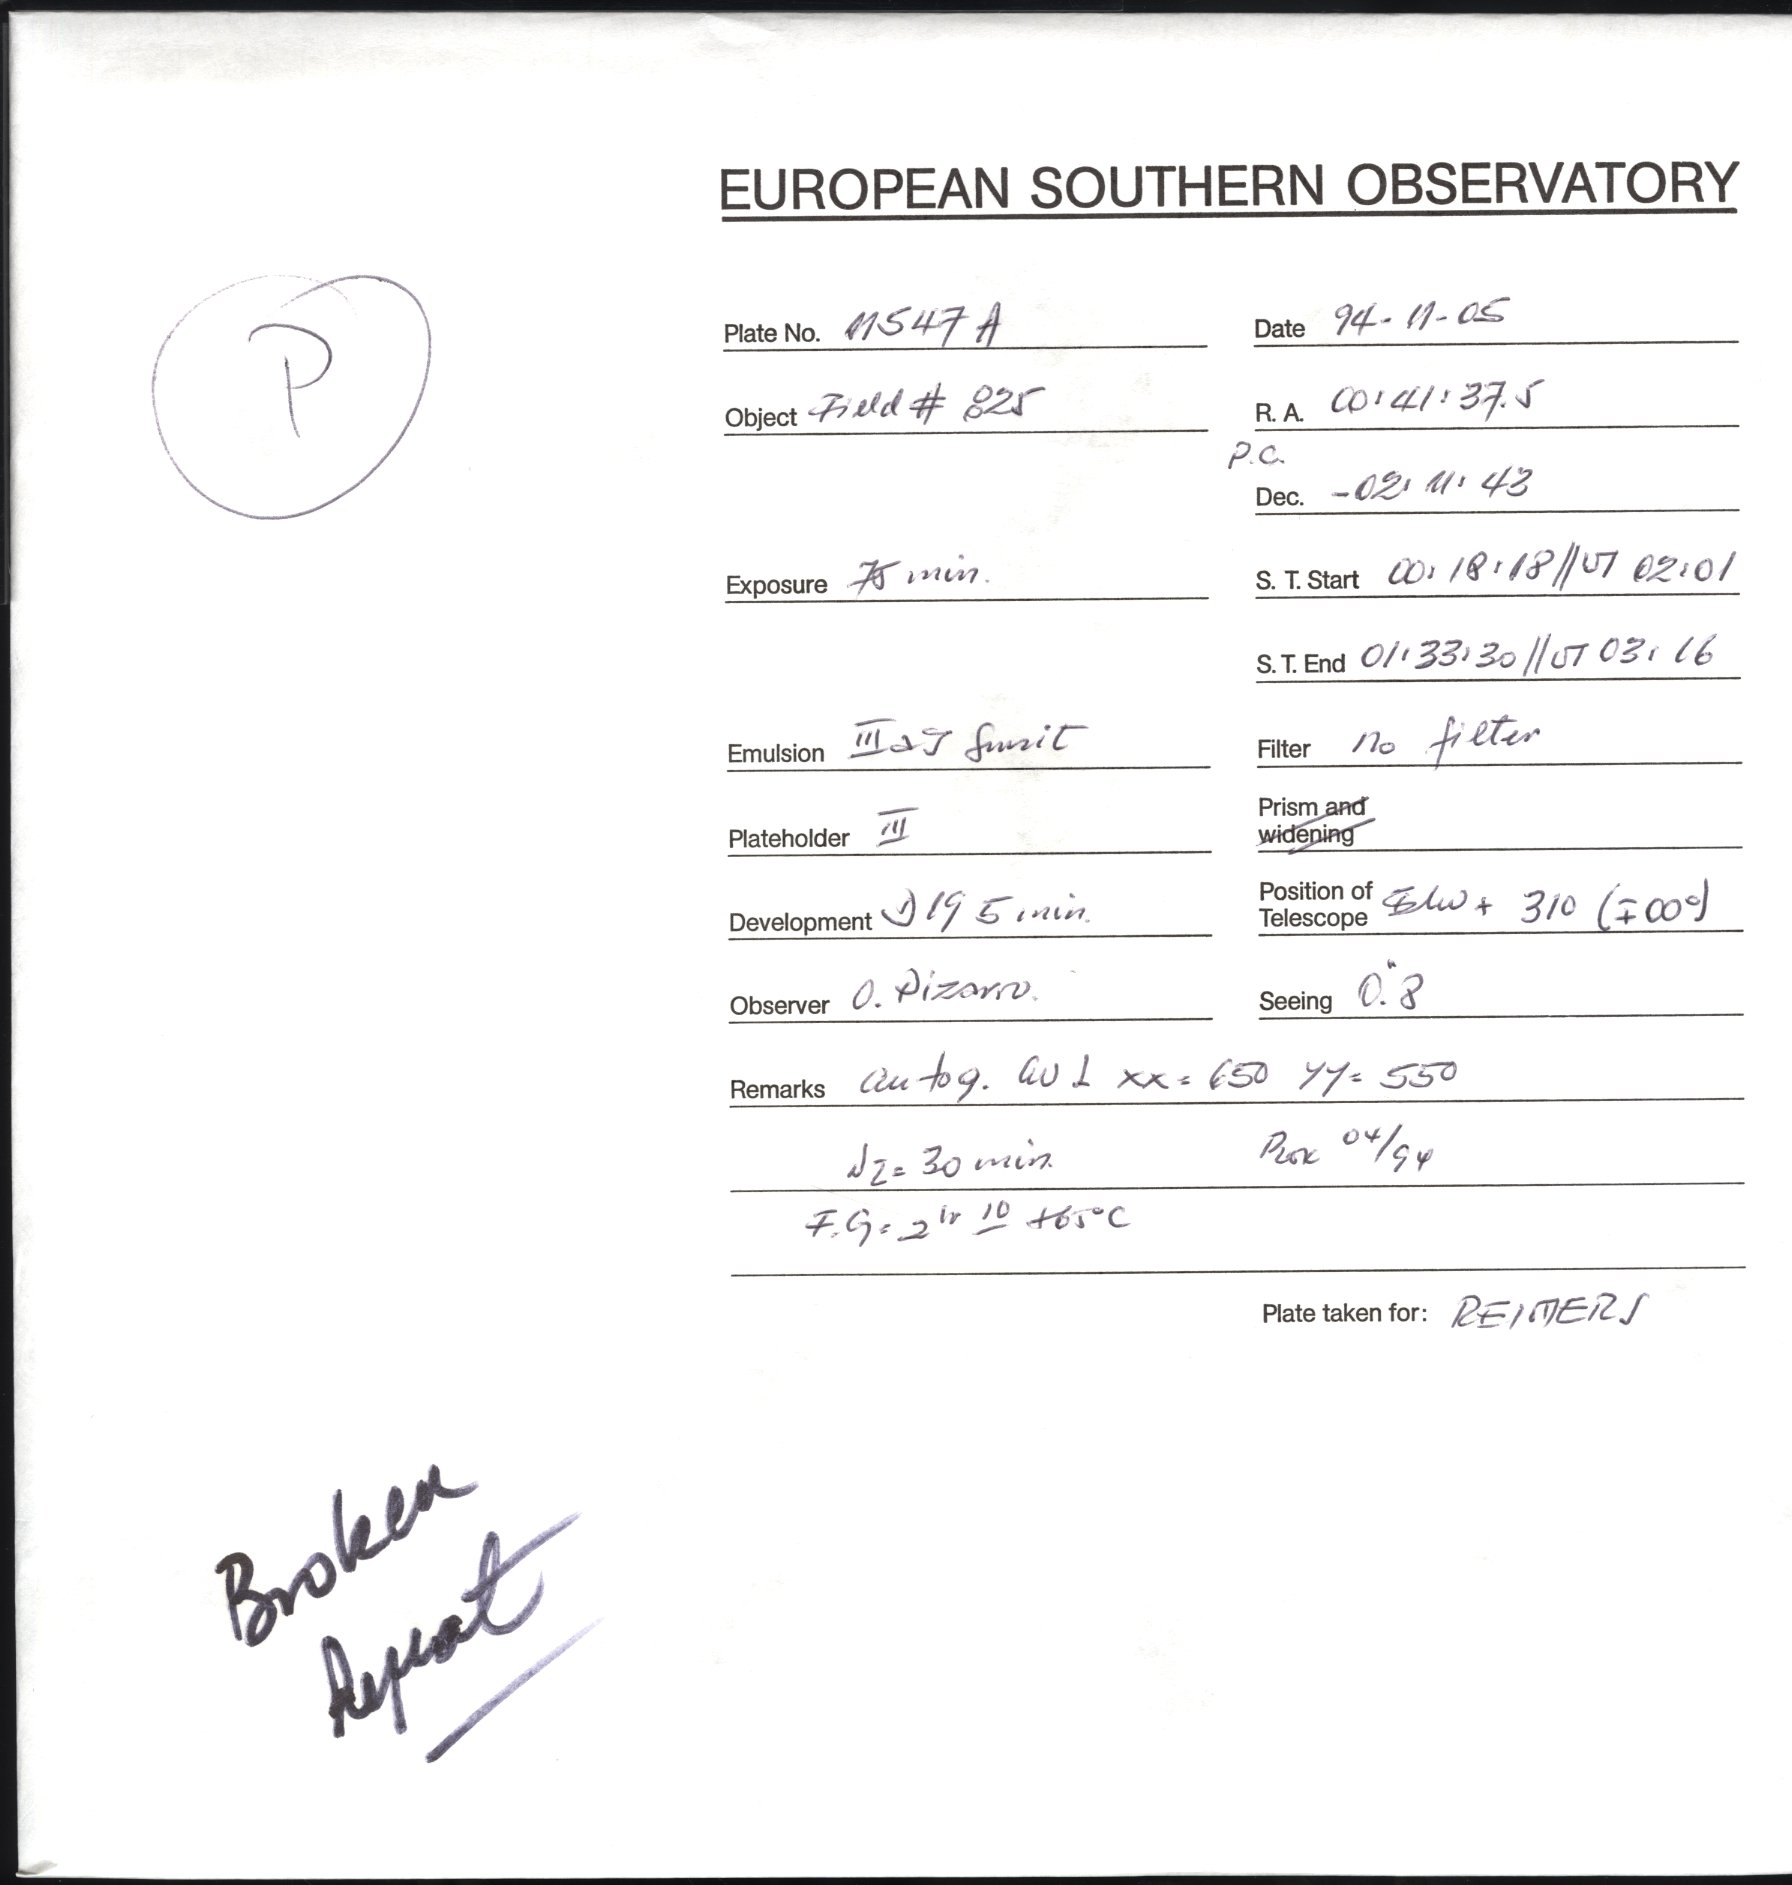 EUROPEAN SOUTHERN OBSERVATORY
P
Plate No. 11547 A
Date 94-11-05
Object Field # 825
R. A. 00:41:37.5
P.C.
Dec. -02:11:43
Exposure 75 min.
S. T. Start 00:18:18//UT 02:01
S. T. End 01:33:30//UT 03:16
Emulsion III aJ
Filter no filter
Plateholder III
Prism and widening
Development D19 5 min.
Position of Telescope + 310 (
Observer O. Pizarro.
Seeing 0."8
Remarks autog. GU 1 xx = 650 yy = 550
N2 = 30 min.
04/94
F.G = 2 hr 10 +65°C
Plate taken for: REIMERS
Broken
Repeat